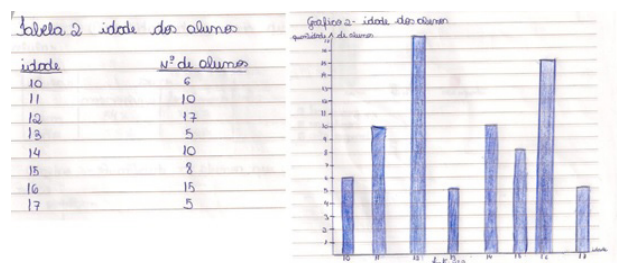 Tabela 2 idade dos alunos
idade Nº de alunos
10 6
11 10
12 17
13 5
14 10
15 8
16 15
17 5
Gráfico 2- idade dos alunos
quantidade de alunos
10
9
8
7
6
5
4
3
2
1
10 11 12 13 14 15 16 17
idade